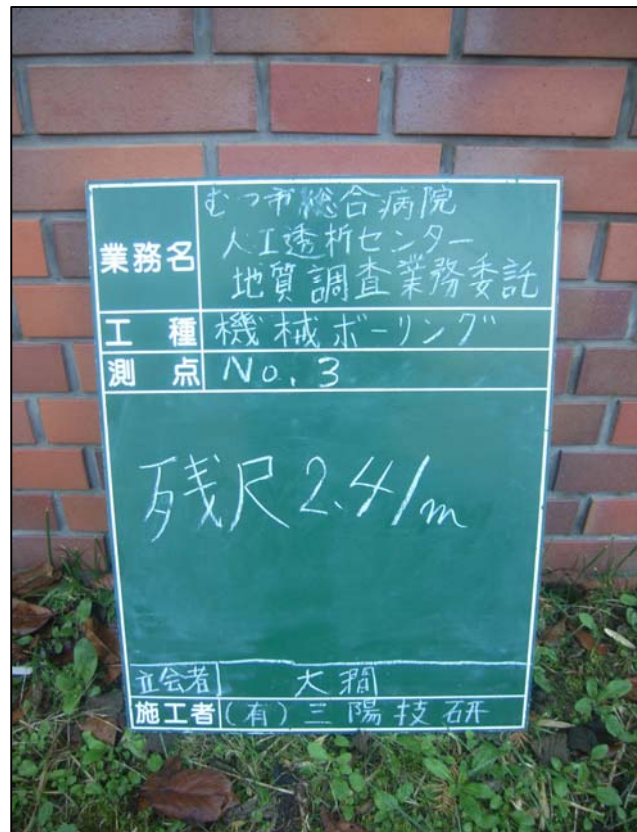 業務名
むつ市総合病院
人工透析センター
地質調査業務委託
工種 機械ボーリング
測点 No.3
残尺 2.41m
立会者 大
施工者 (有)三陽技研